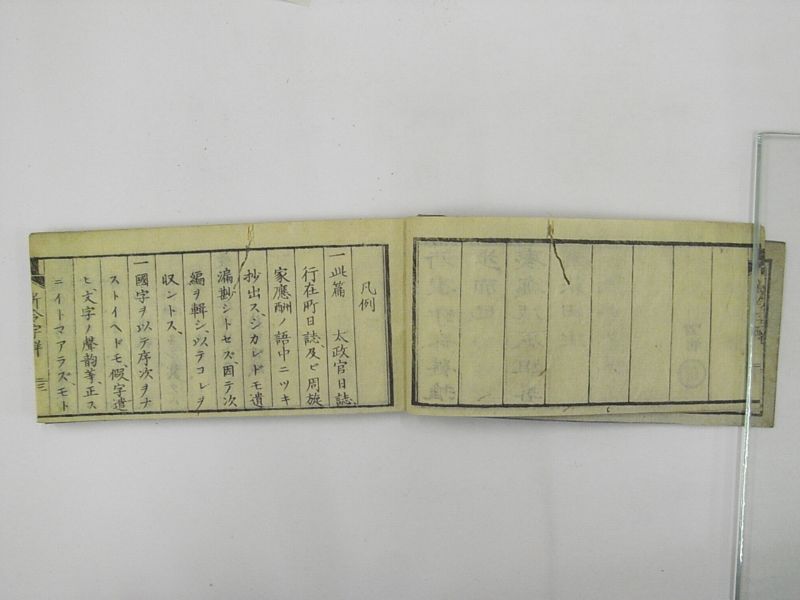 凡例
一此篇　太政官日誌
行在町日誌、及ビ周旋
家應酬ノ語中ニツキ
抄出ス、シカレドモ遺
漏尠シトセズ、因テ次
編ヲ輯シ、以テコレヲ
収ントス、
一國字ヲ以テ序次ヲナ
ストイヘドモ、假字遣
ヒ文字ノ聲韵等、正ス
ニイトマアラズ、モト